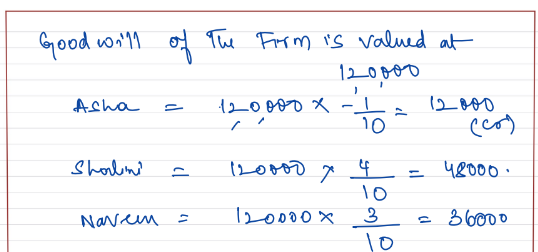 Goodwill of The Firm is valued at
120,000
Asha = 120000 × -1/10 = 12000
(Cr)
Shalini = 120000 × 4/10 = 48000.
Naveen = 120000 × 3/10 = 36000